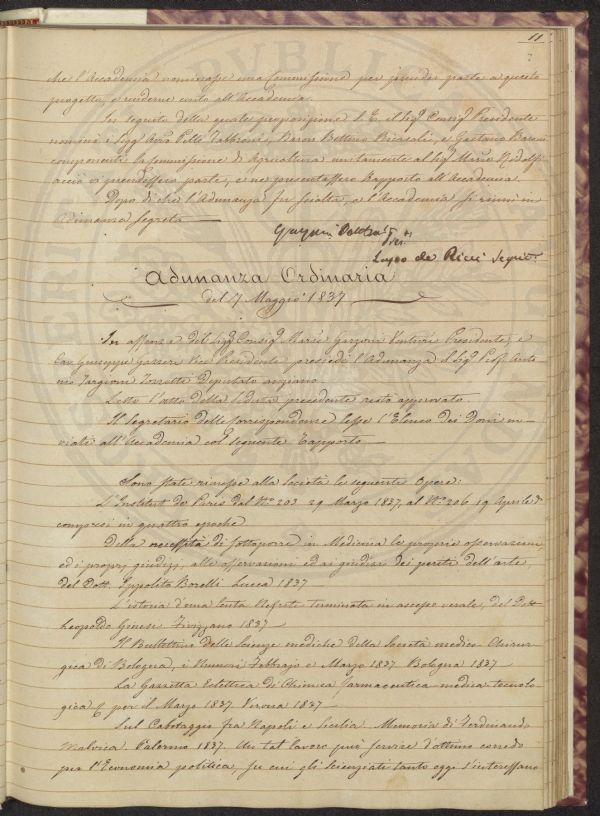 11
7
che l'Accademia nominasse una Commissione per prender parte a questo
progetto, e renderne conto all'Accademia.
In seguito della quale proposizione S. E. il Sigr Consigr Presidente
nominò i Sigg.ri Avvo Pelle Fabbroni, Baron Bettino Ricasoli, e Gaetano Baroni
componenti la Commissione di Agricoltura unitamente al Sigr Marco Ridolfi
acciò vi prendessero parte, e ne presentassero Rapporto all'Accademia.
Dopo di che l'Adunanza fu sciolta, e l'Accademia si riunì in
Adunanza Segreta
Pres.te
Luigo de Ricci Segrio
Adunanza Ordinaria
del 7 Maggio 1837
In assenza del Sigr Consigr March Garzoni Venturi Presidente, e
Cav. Giuseppe Gazzeri Vice Presidente presiedè l'Adunanza il Sigr Prof. Anto
nio Targioni Tozzetti Deputato anziano.
Letto l'atto della seduta precedente restò approvato.
Il Segretario delle Corrispondenze lesse l'Elenco dei Doni in-
viati all'Accademia col seguente Rapporto —
Sono state rimesse alla Società le seguenti Opere:
L'Institut de Paris dal No 203 29 Marzo 1837, al No 206 19 Aprile do
compresi in quattro epoche
Della necessità di sottoporre in Medicina le proprie osservazioni
ed i proprj giudizj, alle osservazioni ed ai giudizi dei periti dell'arte,
del Dott. Ippolito Borelli Lucca 1837
L'istoria d'una lenta Nefrite terminata in ascesso renale, del Dott
Leopoldo Ginesi. Fivizzano 1837 —
Il Bullettino delle Scienze mediche della Società medico-Chirur-
gica di Bologna, i Numeri Febbrajo e Marzo 1837 Bologna 1837 —
La Gazzetta Eclettica di Chimica farmaceutica medica tecnolo-
gica per il Marzo 1837. Verona 1837 —
Sul Cabotaggio fra Napoli e Sicilia. Memoria di Ferdinando
Malvica. Palermo 1837. Un tal lavoro può servire d'ottimo corredo
per l'Economia politica, su cui gli Scienziati tanto oggi s'interessano